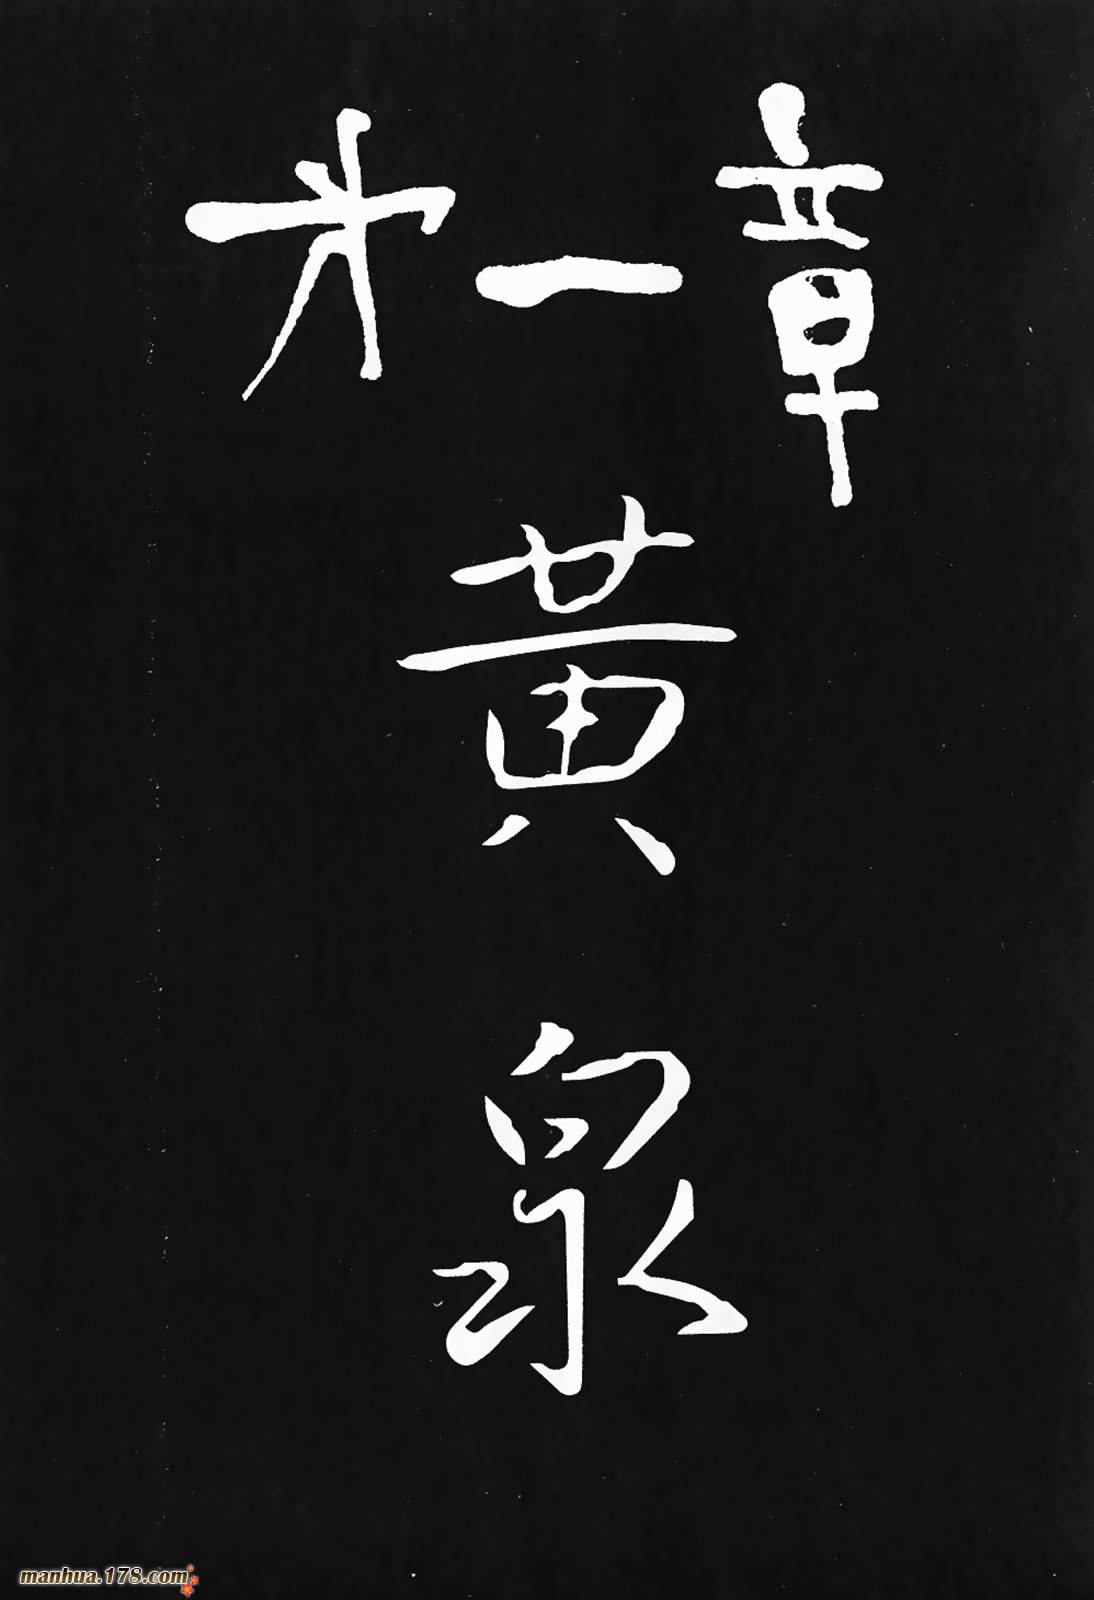 第一章
黄泉
manhua.178.com